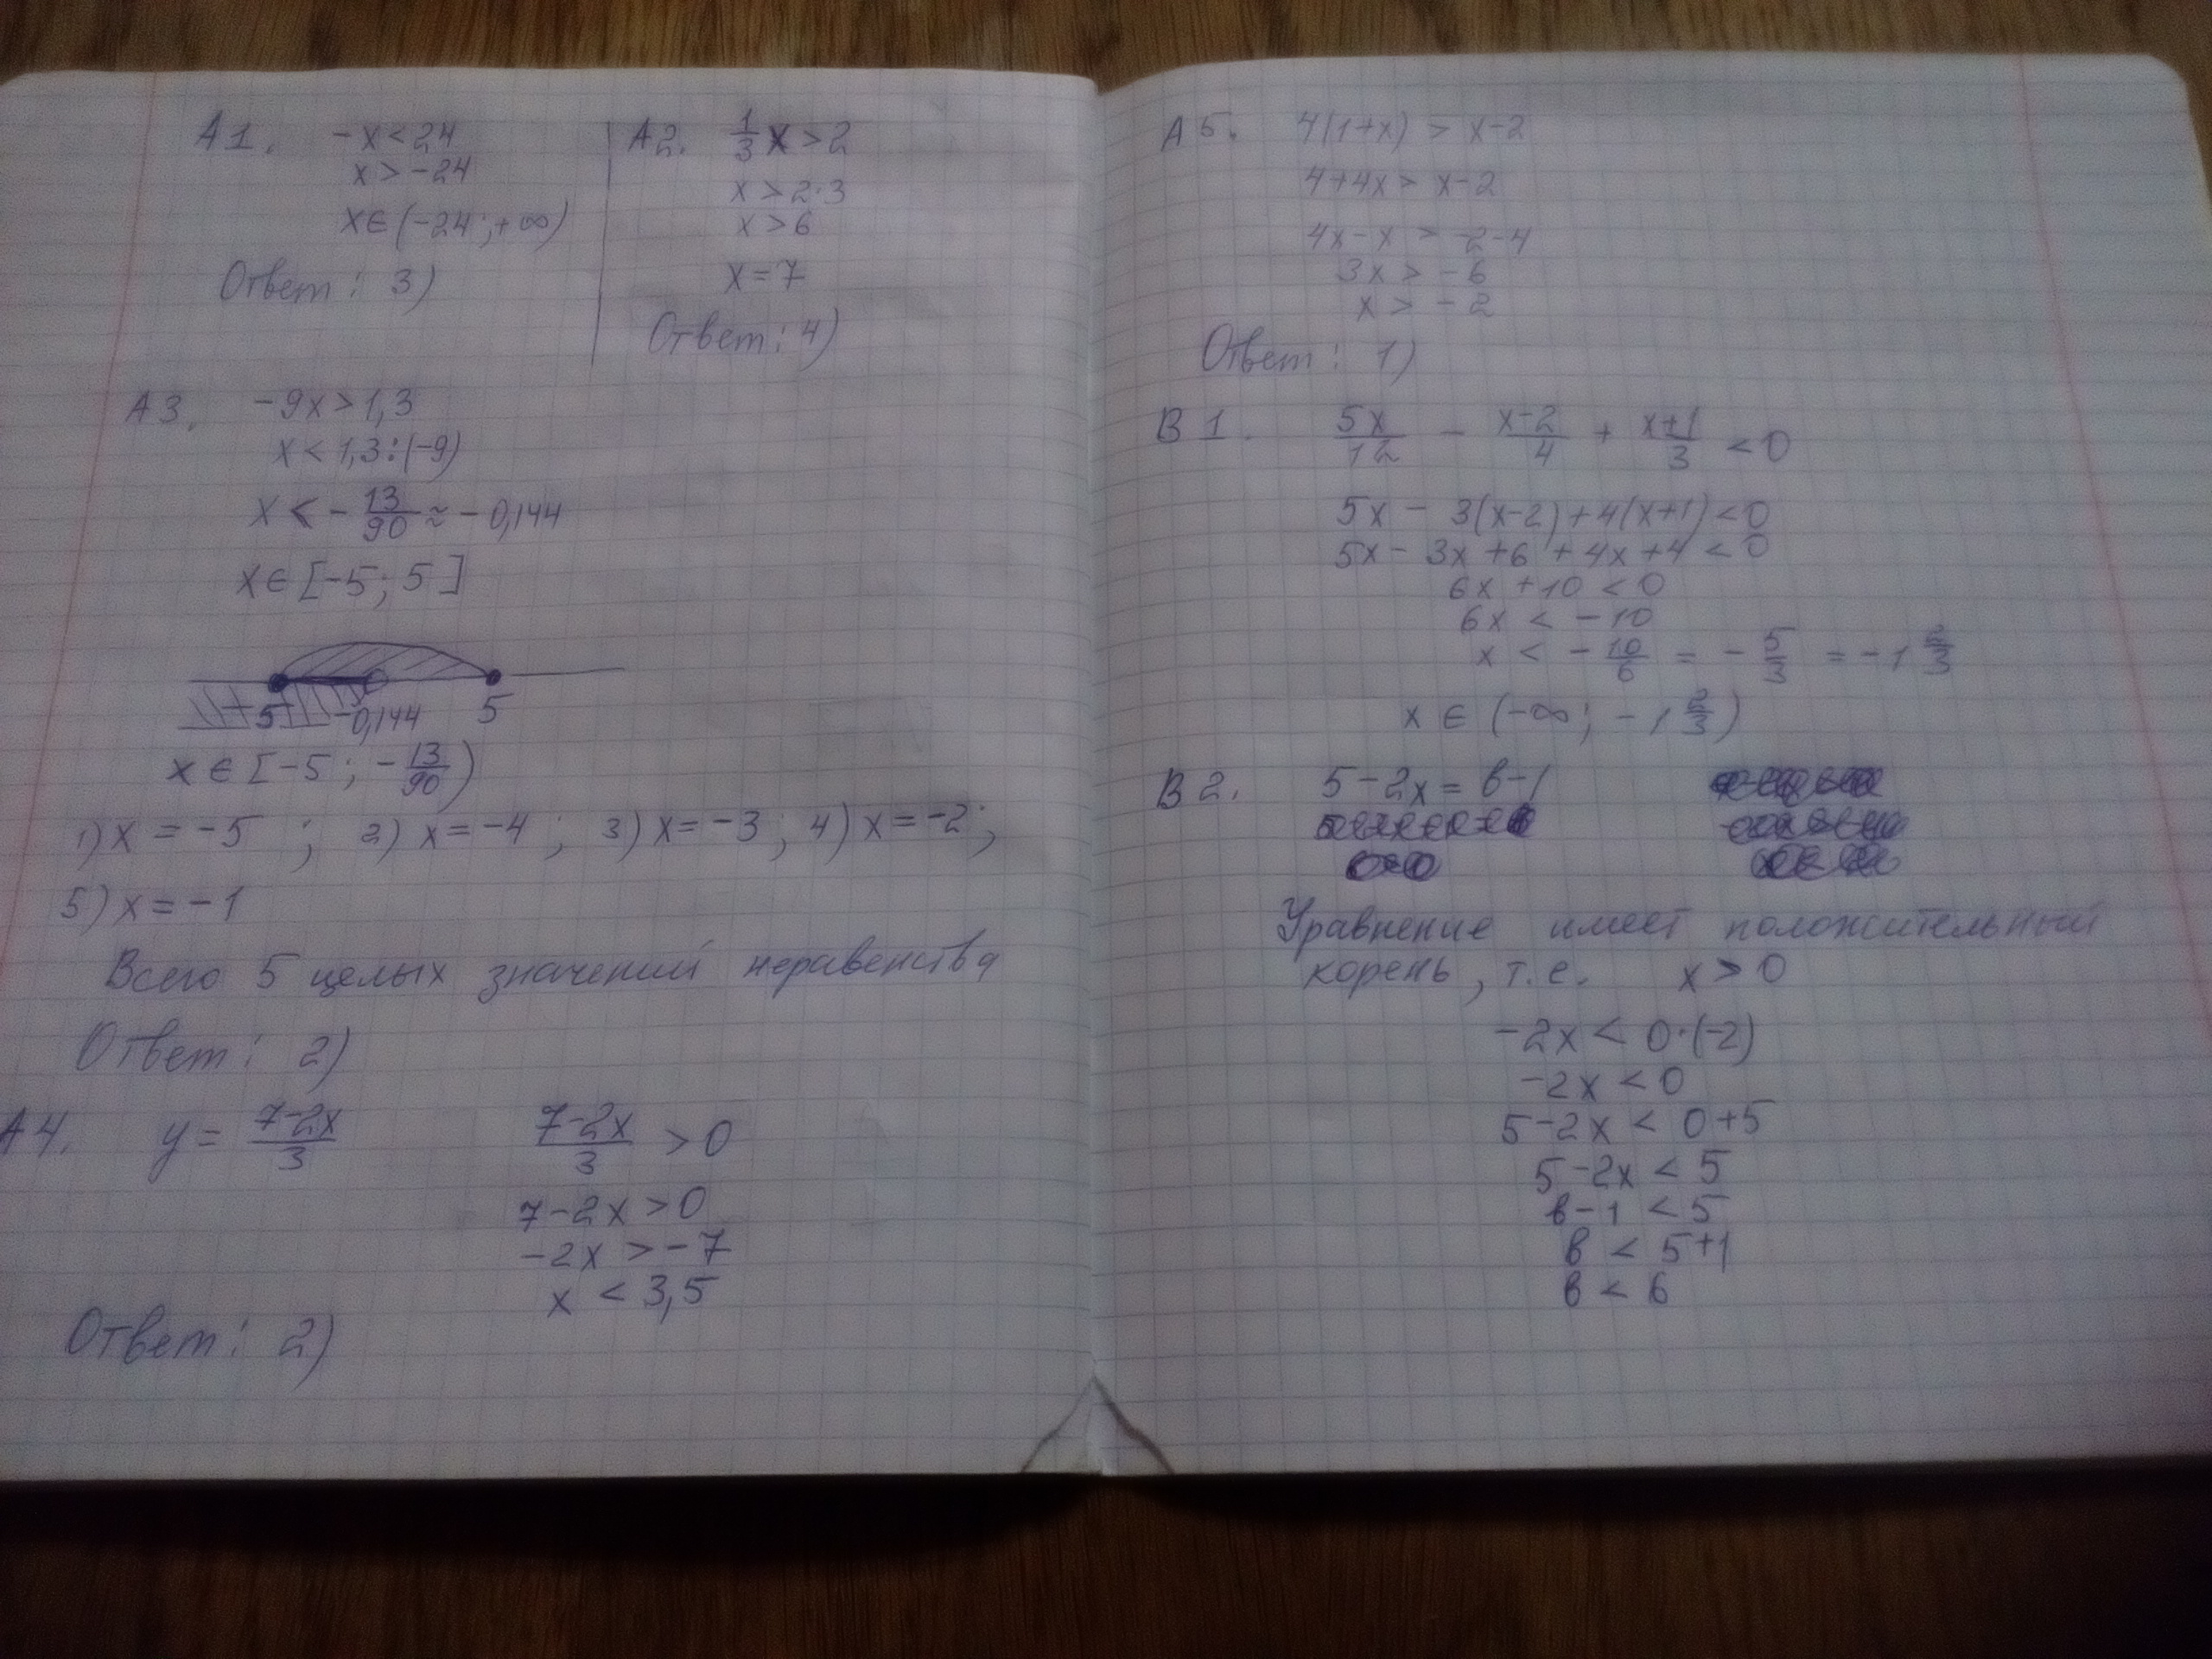 А1. -x < 24
x > -24
x ∈ (-24; +∞)
Ответ: 3)
А2. 1/3 x > 2
x > 2·3
x > 6
x = 7
Ответ: 4)
А3. -9x > 1,3
x < 1,3:(-9)
x < - 13/90 ≈ -0,144
x ∈ [-5; 5]
-5 -0,144 5
x ∈ [-5; - 13/90)
1) x = -5 ; 2) x = -4 ; 3) x = -3 ; 4) x = -2 ;
5) x = -1
Всего 5 целых значений неравенства
Ответ: 2)
А4. y = (7-2x)/3
(7-2x)/3 > 0
7-2x > 0
-2x > -7
x < 3,5
Ответ: 2)
А5. 4(1+x) > x-2
4+4x > x-2
4x-x > -2-4
3x > -6
x > -2
Ответ: 1)
В1. 5x/12 - (x-2)/4 + (x+1)/3 < 0
5x - 3(x-2)+4(x+1) < 0
5x - 3x +6 + 4x +4 < 0
6x +10 < 0
6x < -10
x < - 10/6 = - 5/3 = -1 2/3
x ∈ (-∞; -1 2/3)
В2. 5-2x = в-1
Уравнение имеет положительный
корень, т.е. x > 0
-2x < 0·(-2)
-2x < 0
5-2x < 0+5
5-2x < 5
в-1 < 5
в < 5+1
в < 6